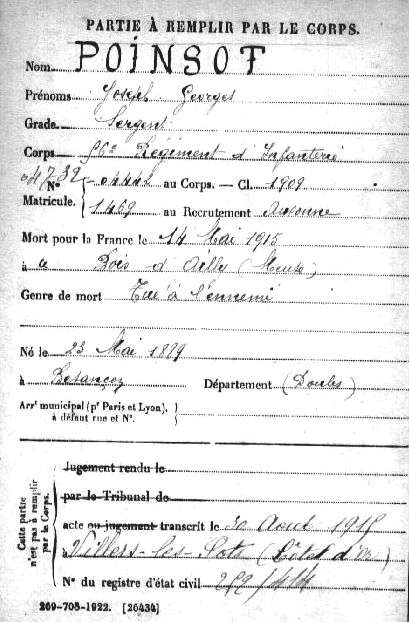 PARTIE À REMPLIR PAR LE CORPS.
Nom POINSOT
Prénoms Joseph Georges
Grade Sergent
Corps 56e Régiment d'Infanterie
04732
N° 04442 au Corps. — Cl. 1909
Matricule. 1469 au Recrutement Auxonne
Mort pour la France le 14 Mai 1915
à Bois d'Ailly (Meuse)
Genre de mort Tué à l'ennemi
Né le 23 Mai 1889
à Besançon Département (Doubs)
Arrt municipal (pr Paris et Lyon),
à défaut rue et N°.
Cette partie
n'est pas à remplir
par le Corps.
Jugement rendu le
par le Tribunal de
acte ou jugement transcrit le 30 Août 1915
Villers-les-Pots (Côte d'Or)
N° du registre d'état civil
269-708-1922. [26434]